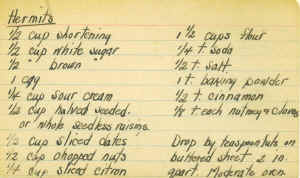 Hermits
1/2 cup shortening
1/2 cup white sugar
1/2 " brown "
1 egg
1/4 cup sour cream
1/2 cup halved seeded
or whole seedless raisins
1/2 cup sliced dates
1/2 cup chopped nuts
1/4 cup sliced citron
1 1/2 cups flour
1/4 t soda
1/2 t. salt
1 t baking powder
1/2 t. cinnamon
1/8 t each nutmeg & cloves
Drop by teaspoonfuls on
buttered sheet 2 in
apart. Moderate oven